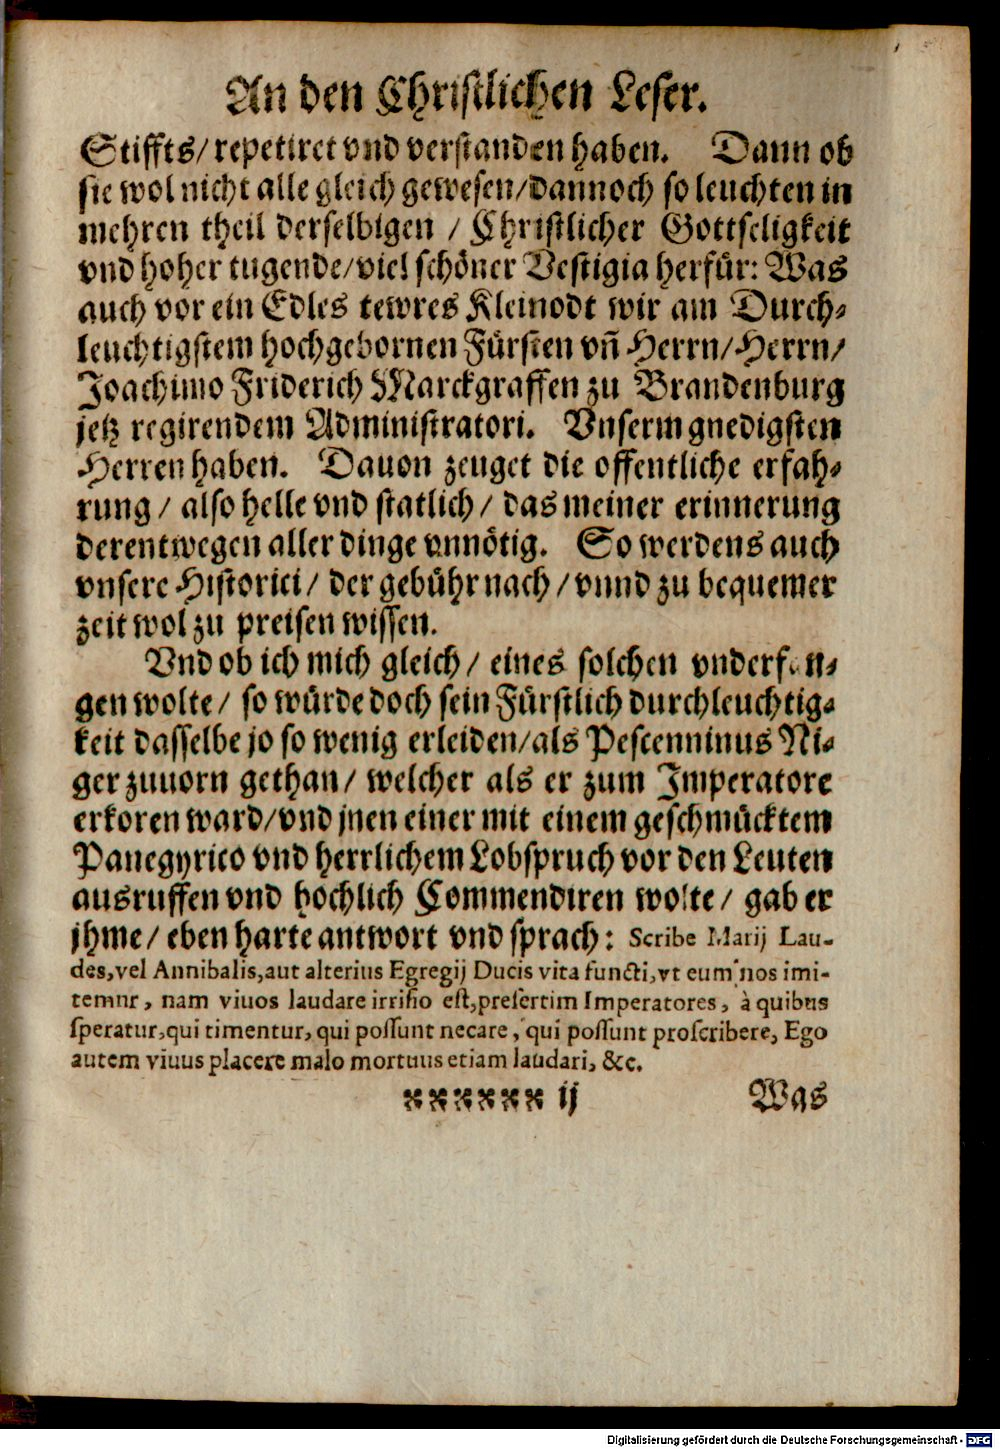 An den Christlichen Leser.
Stiffts/ repetiret vnd verstanden haben. Dann ob
sie wol nicht alle gleich gewesen/ dannoch so leuchten in
mehren theil derselbigen / Christlicher Gottseligkeit
vnd hoher tugende/ viel schöner Vestigia herfür: Was
auch vor ein Edles tewres Kleinodt wir am Durch-
leuchtigstem hochgebornen Fürsten vñ Herrn/ Herrn/
Joachimo Friderich Marckgraffen zu Brandenburg
jetz regirendem Administratori. Vnserm gnedigsten
Herren haben. Dauon zeuget die offentliche erfah-
rung / also helle vnd statlich / das meiner erinnerung
derentwegen aller dinge vnnötig. So werdens auch
vnsere Historici / der gebühr nach / vnnd zu bequemer
zeit wol zu preisen wissen.
Vnd ob ich mich gleich / eines solchen vnderfan-
gen wolte / so würde doch sein Fürstlich durchleuchtig-
keit dasselbe jo so wenig erleiden/ als Pescenninus Ni-
ger zuuorn gethan / welcher als er zum Imperatore
erkoren ward/ vnd jnen einer mit einem geschmücktem
Panegyrico vnd herrlichem Lobspruch vor den Leuten
ausruffen vnd hochlich Commendiren wolte / gab er
jhme / eben harte antwort vnd sprach: Scribe Marij Lau-
des, vel Annibalis, aut alterius Egregij Ducis vita functi, vt eum nos imi-
temur, nam viuos laudare irrisio est, presertim Imperatores, à quibus
speratur, qui timentur, qui possunt necare, qui possunt proscribere, Ego
autem viuus placere malo mortuus etiam laudari, &c.
※※※※※※ ij Was
Digitalisierung gefördert durch die Deutsche Forschungsgemeinschaft - DFG